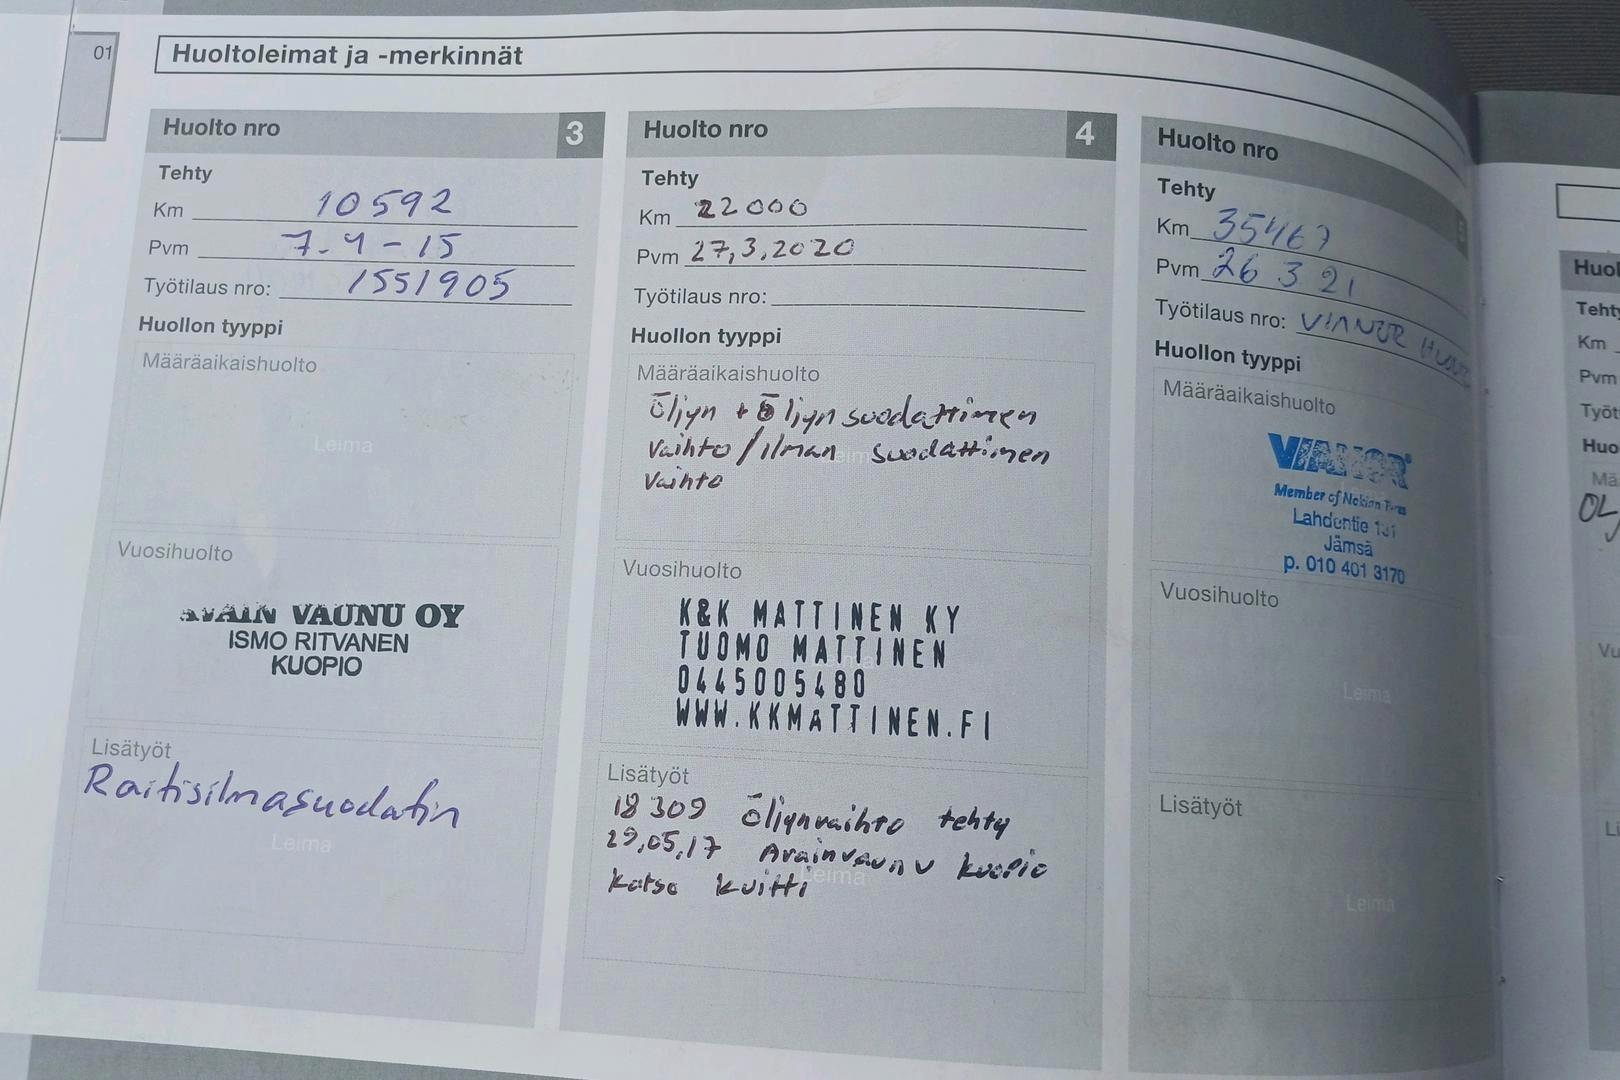 01
Huoltoleimat ja -merkinnät
Huolto nro 3
Tehty
Km 10592
Pvm 7.4-15
Työtilaus nro: 1551905
Huollon tyyppi
Määräaikaishuolto
Leima
Vuosihuolto
VAUNU OY
ISMO RITVANEN
KUOPIO
Lisätyöt
Raitisilmasuodatin
Leima
Huolto nro 4
Tehty
Km 22000
Pvm 27,3,2020
Työtilaus nro:
Huollon tyyppi
Määräaikaishuolto
Öljyn + Öljynsuodattimen
vaihto / ilman suodattimen
vaihto
Vuosihuolto
K&K MATTINEN KY
TUOMO MATTINEN
0445005480
WWW.KKMATTINEN.FI
Lisätyöt
18 309 Öljynvaihto tehty
29,05,17 Avainvaunu kuopio
katso kuitti
Leima
Huolto nro
Tehty
Km 35467
Pvm 26 3 21
Työtilaus nro:
Huollon tyyppi
Määräaikaishuolto
VIANOR
Member of Nokian Tyres
Lahdentie
Jämsä
p. 010 401 3170
Vuosihuolto
Leima
Lisätyöt
Leima
Km
Pvm